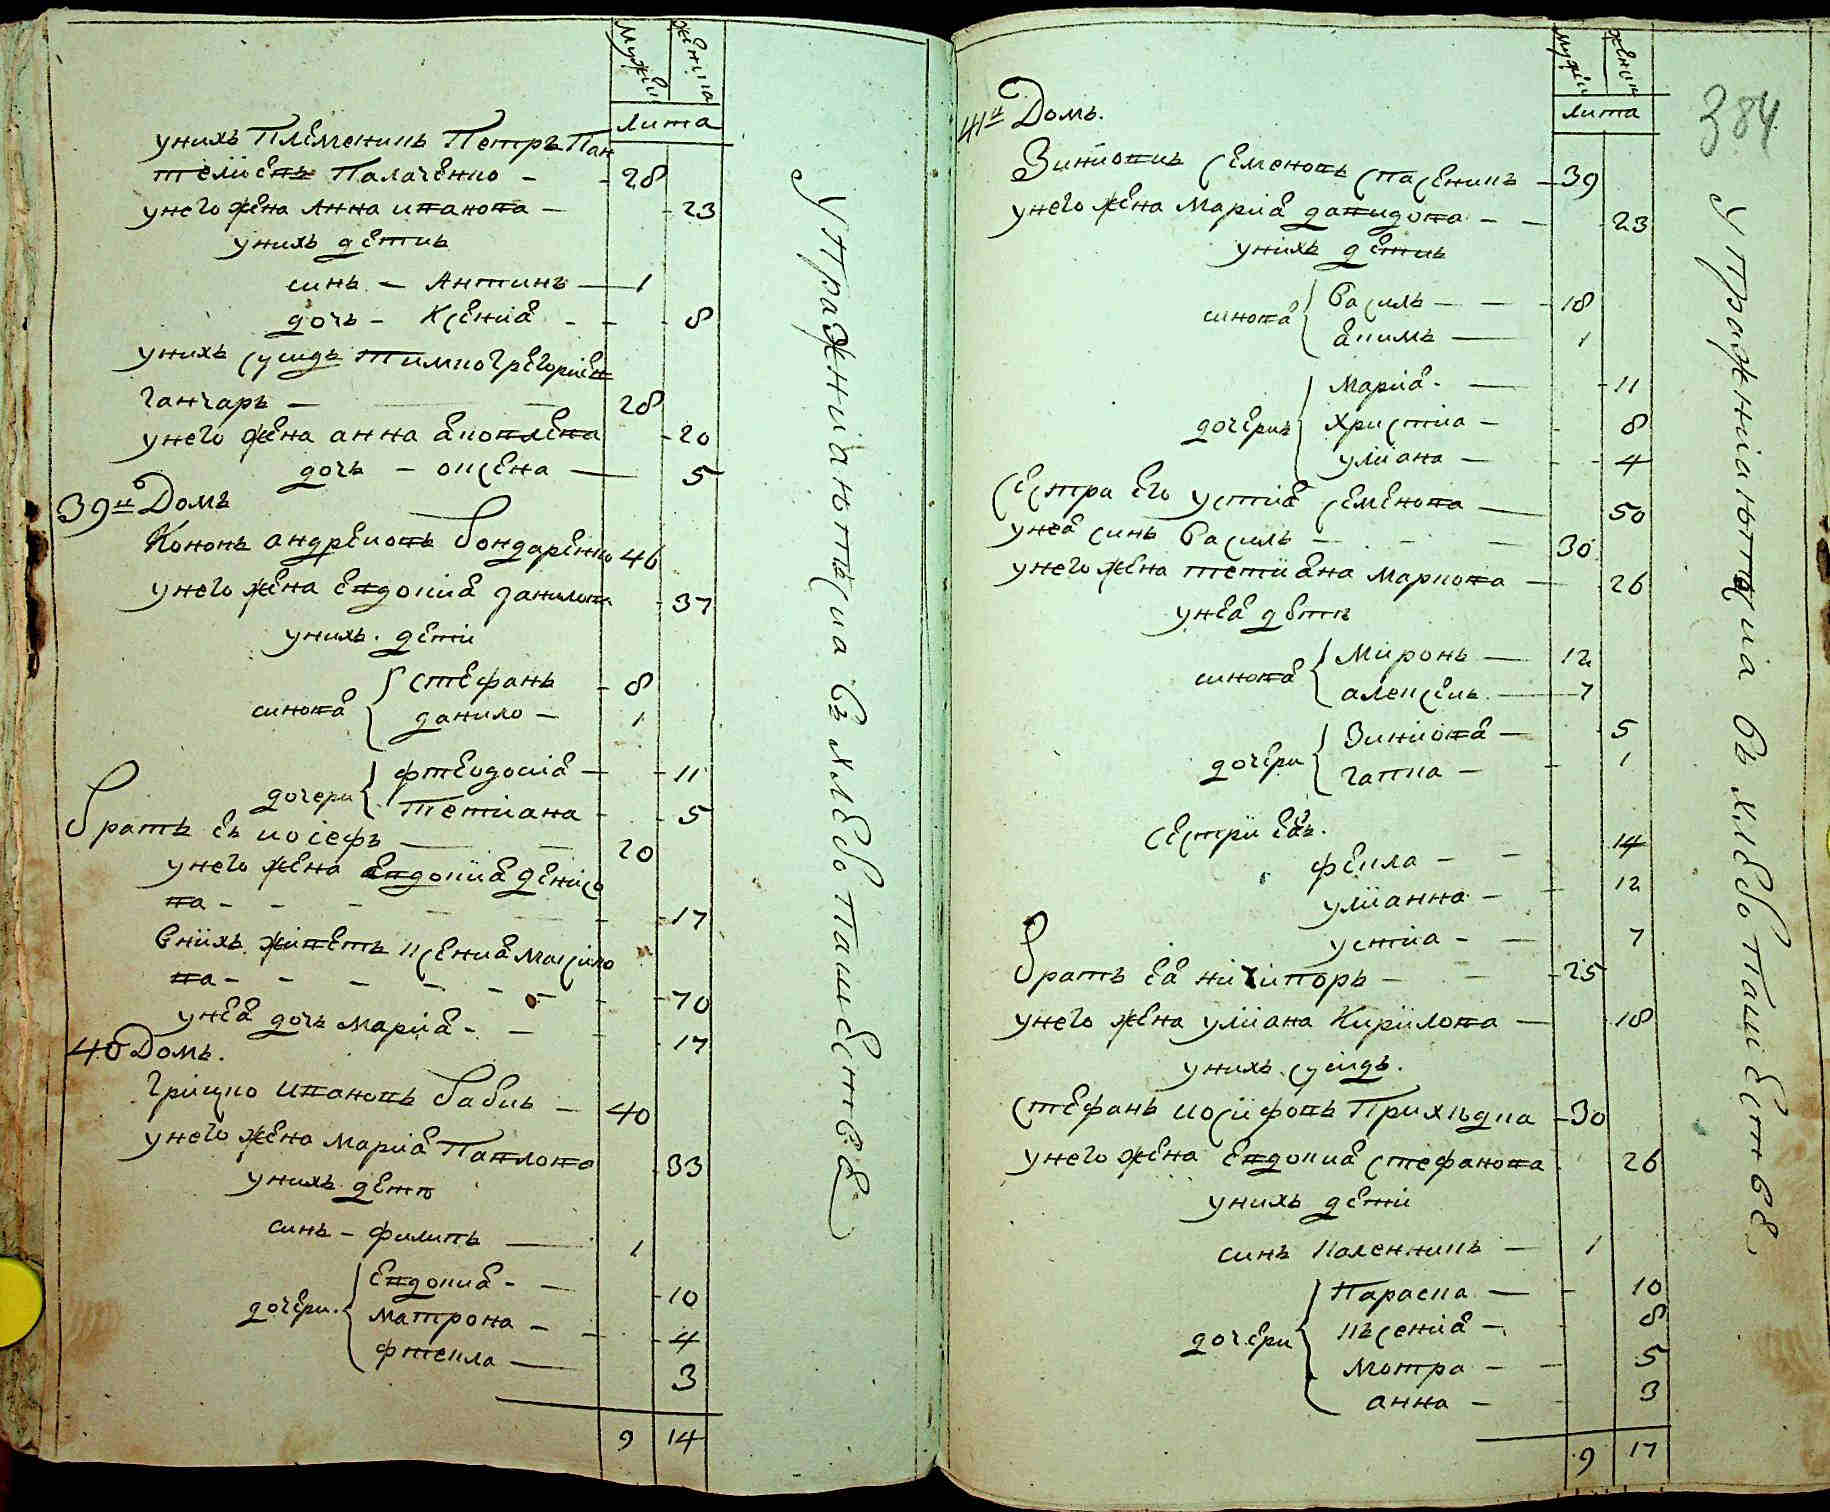 мужск женска
лита
унихъ племенникъ Петръ Пан
телиевъ Палаченко - 28
унего жена Анна иванова - 23
унихъ детиь
синь - Антинъ - 1
дочь - Ксения - 8
унихъ сусидъ Тимко Грегориев
Ганчаръ - 28
унего жена анна яковлева 20
дочь - оксена - 5
39й Домъ
Кононъ андреювъ бондаренко 46
унего жена Евдокия данилова 37
унихъ дети
синовя
стефанъ 8
данило - 1
дочери
фтеодосия - 11
тетиана - 5
братъ ев иосефъ 20
унего жена Евдокия денисо
ва - 17
Внихъ живетъ ксения максимо
ва - 70
унея дочь Мария - 17
40 Домъ.
Грицко ивановъ бабиь - 40
унего жена мария Павлово 33
унихъ дети
синь - филипъ 1
дочери
Евдокия - 10
матрона - 4
фтекла 3
9 14
Упражнiаютъся въ хлебопашестве
мужск женск
лита
384
41й Домъ.
Зинковиь Семеновъ Спасениъ - 39
унего жена Мария давидова - 23
унихъ детиь
синовя
Василь - 18
якимъ 1
дочериь
Мария - 11
христиа - 8
улиана - 4
Сестра его устия семенова 50
унея синь Василь - 30
унего жена тетияна маркова 26
унея дети
синовя
Миронъ 12
алексеиь 7
дочери
Зиниовя - 5
гапка - 1
Сестри еяъ.
фекла - 14
улианна - 12
устиа - 7
братъ ея ничипоръ - 25
унего жена улиана Кирилова 18
унихъ сусидъ.
стефанъ иосифовъ Прихидка 30
унего жена Евдокия стефанова 26
унихъ дети
синь Каленникъ 1
дочери
Параска 10
ксения - 8
мотра - 5
анна - 3
9 17
Упражнiаютъся въ хлебопашестве